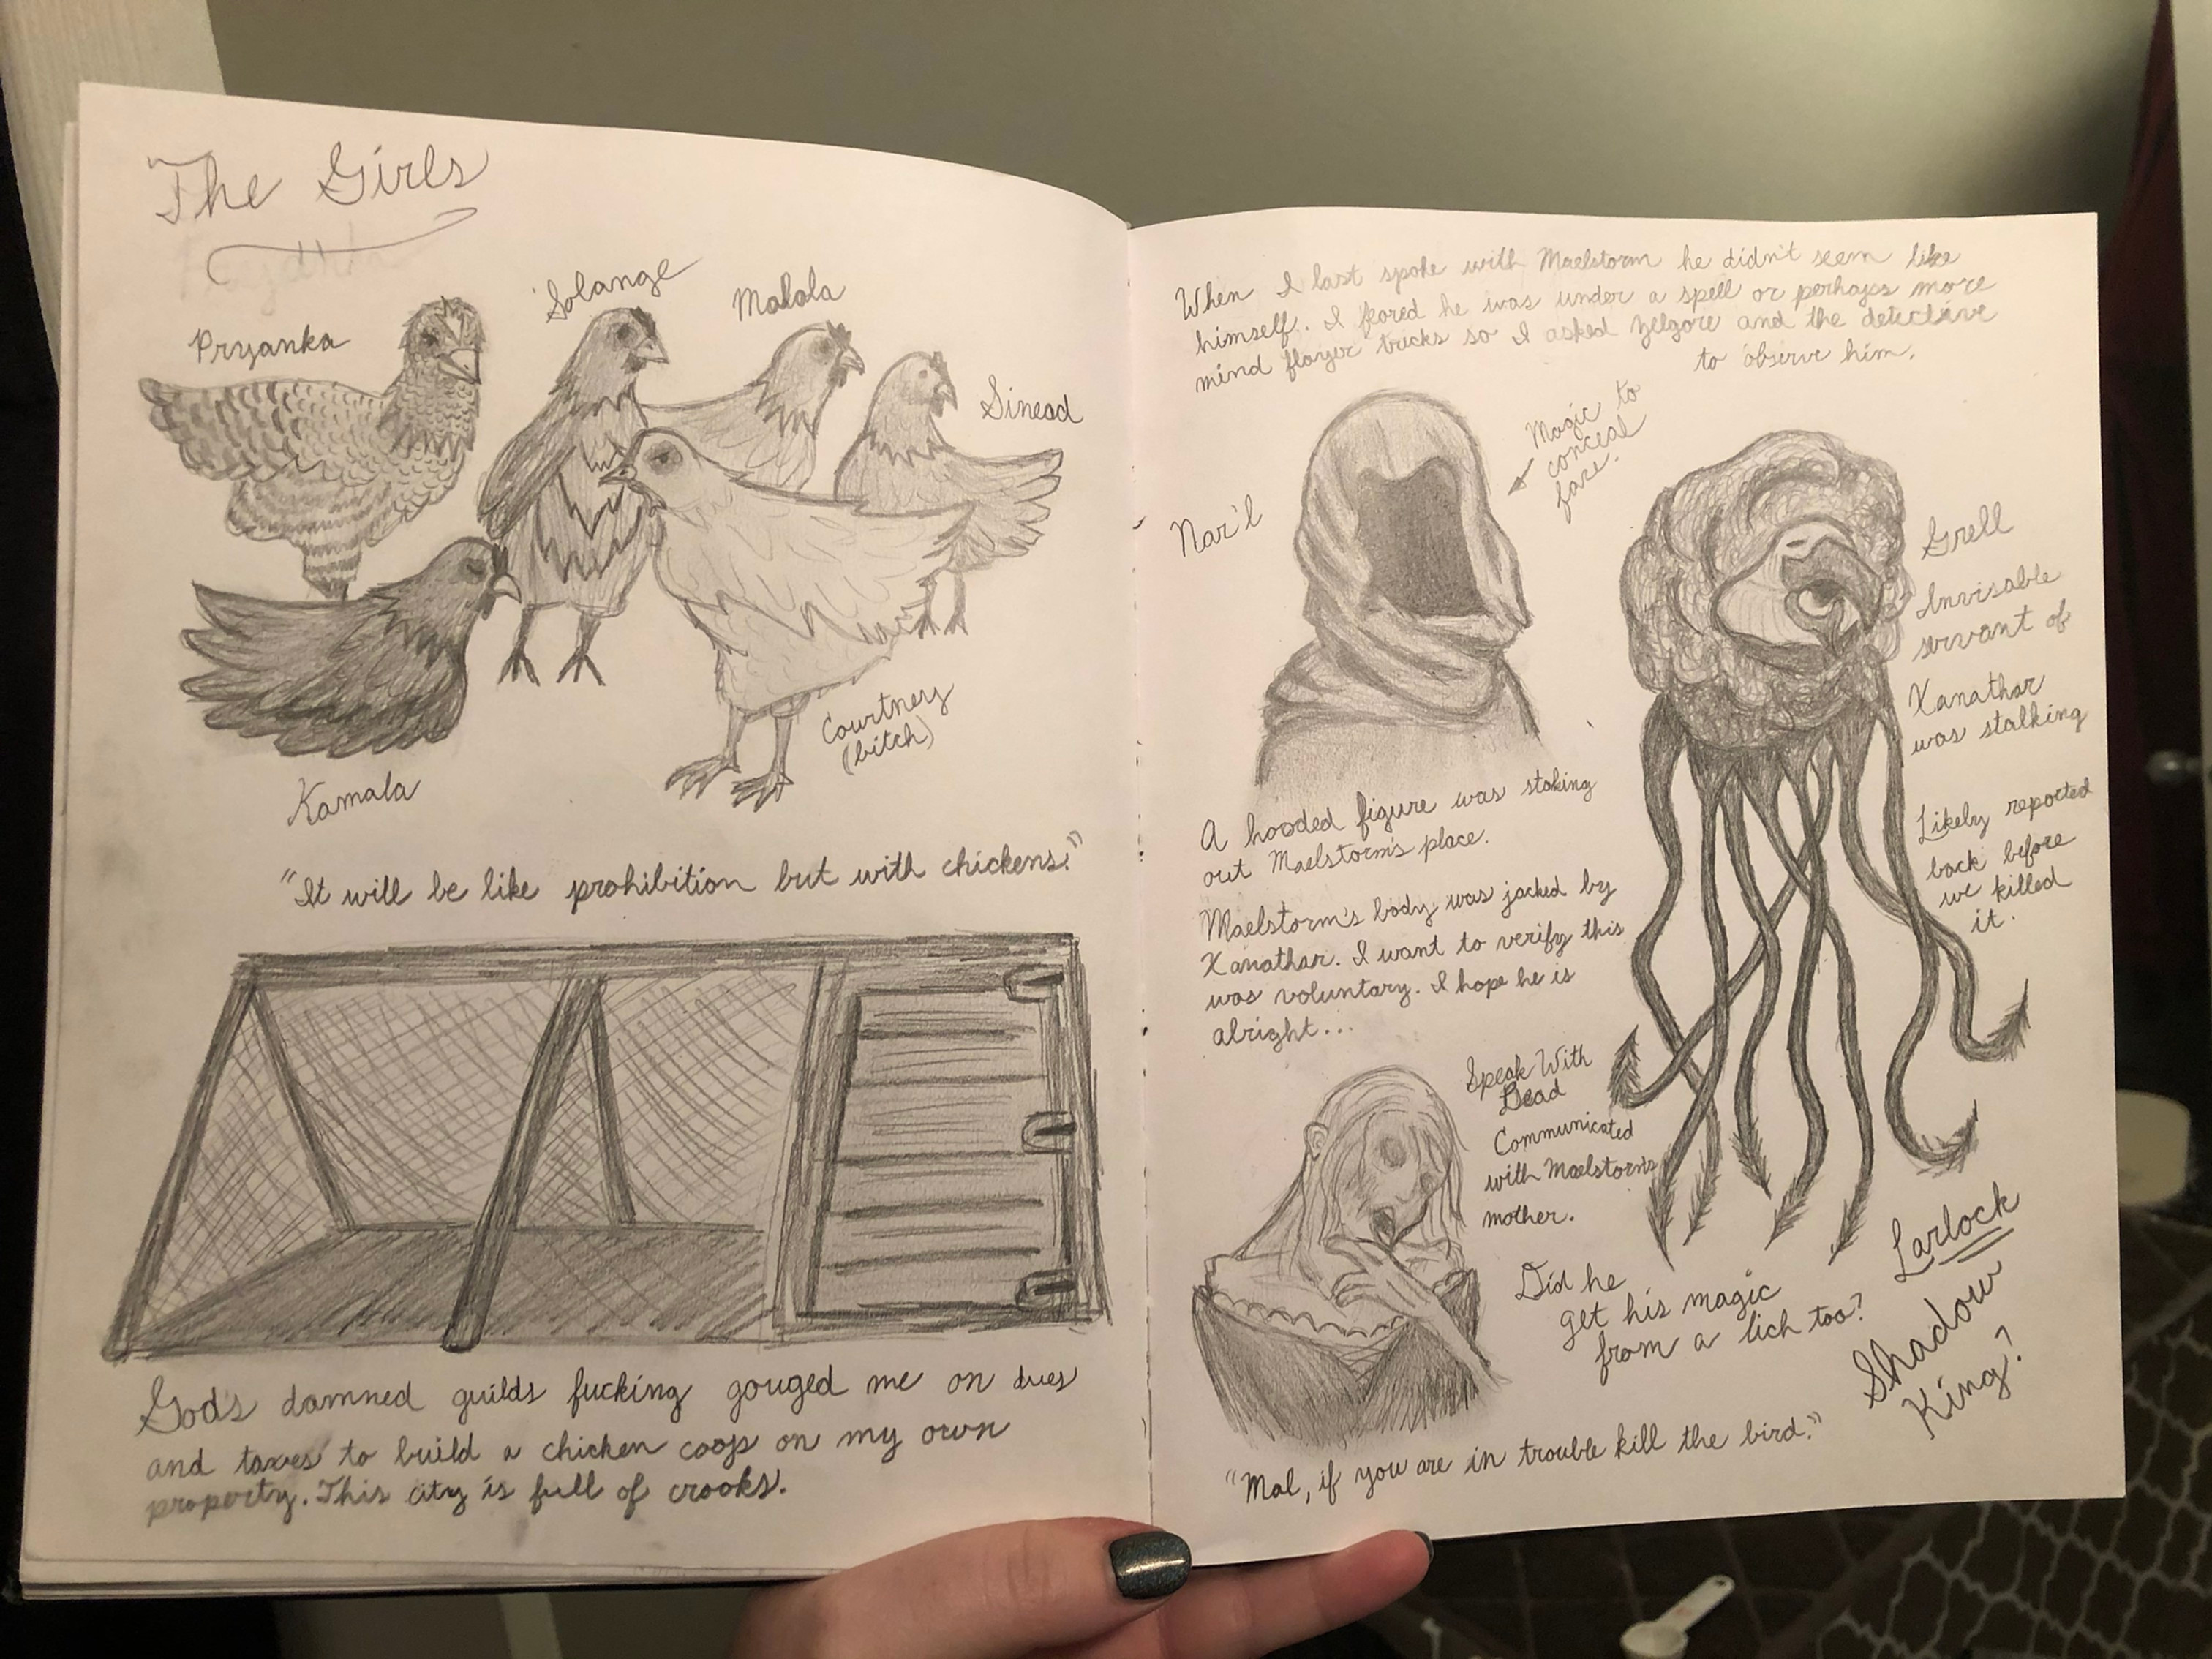 The Girls
Pryanka
Solange
Malala
Sinead
Courtney
(bitch)
Kamala
"It will be like prohibition but with chickens."
Gods damned guilds fucking gouged me on dues
and taxes to build a chicken coop on my own
property. This city is full of crooks.
When I last spoke with Maelstorm he didn't seem like
himself. I feared he was under a spell or perhaps more
mind flayer tricks so I asked Yelgore and the detective
to observe him.
Nar'l
Magic to
conceal
face.
Grell
Invisable
servant of
Xanathar
was stalking
Likely reported
back before
we killed
it.
A hooded figure was staking
out Maelstorm's place.
Maelstorm's body was jacked by
Xanathar. I want to verify this
was voluntary. I hope he is
alright...
Speak With
Dead
Communicated
with Maelstorm's
mother.
Did he
get his magic
from a lich too?
Larlock
Shadow
King?
"Mal, if you are in trouble kill the bird."